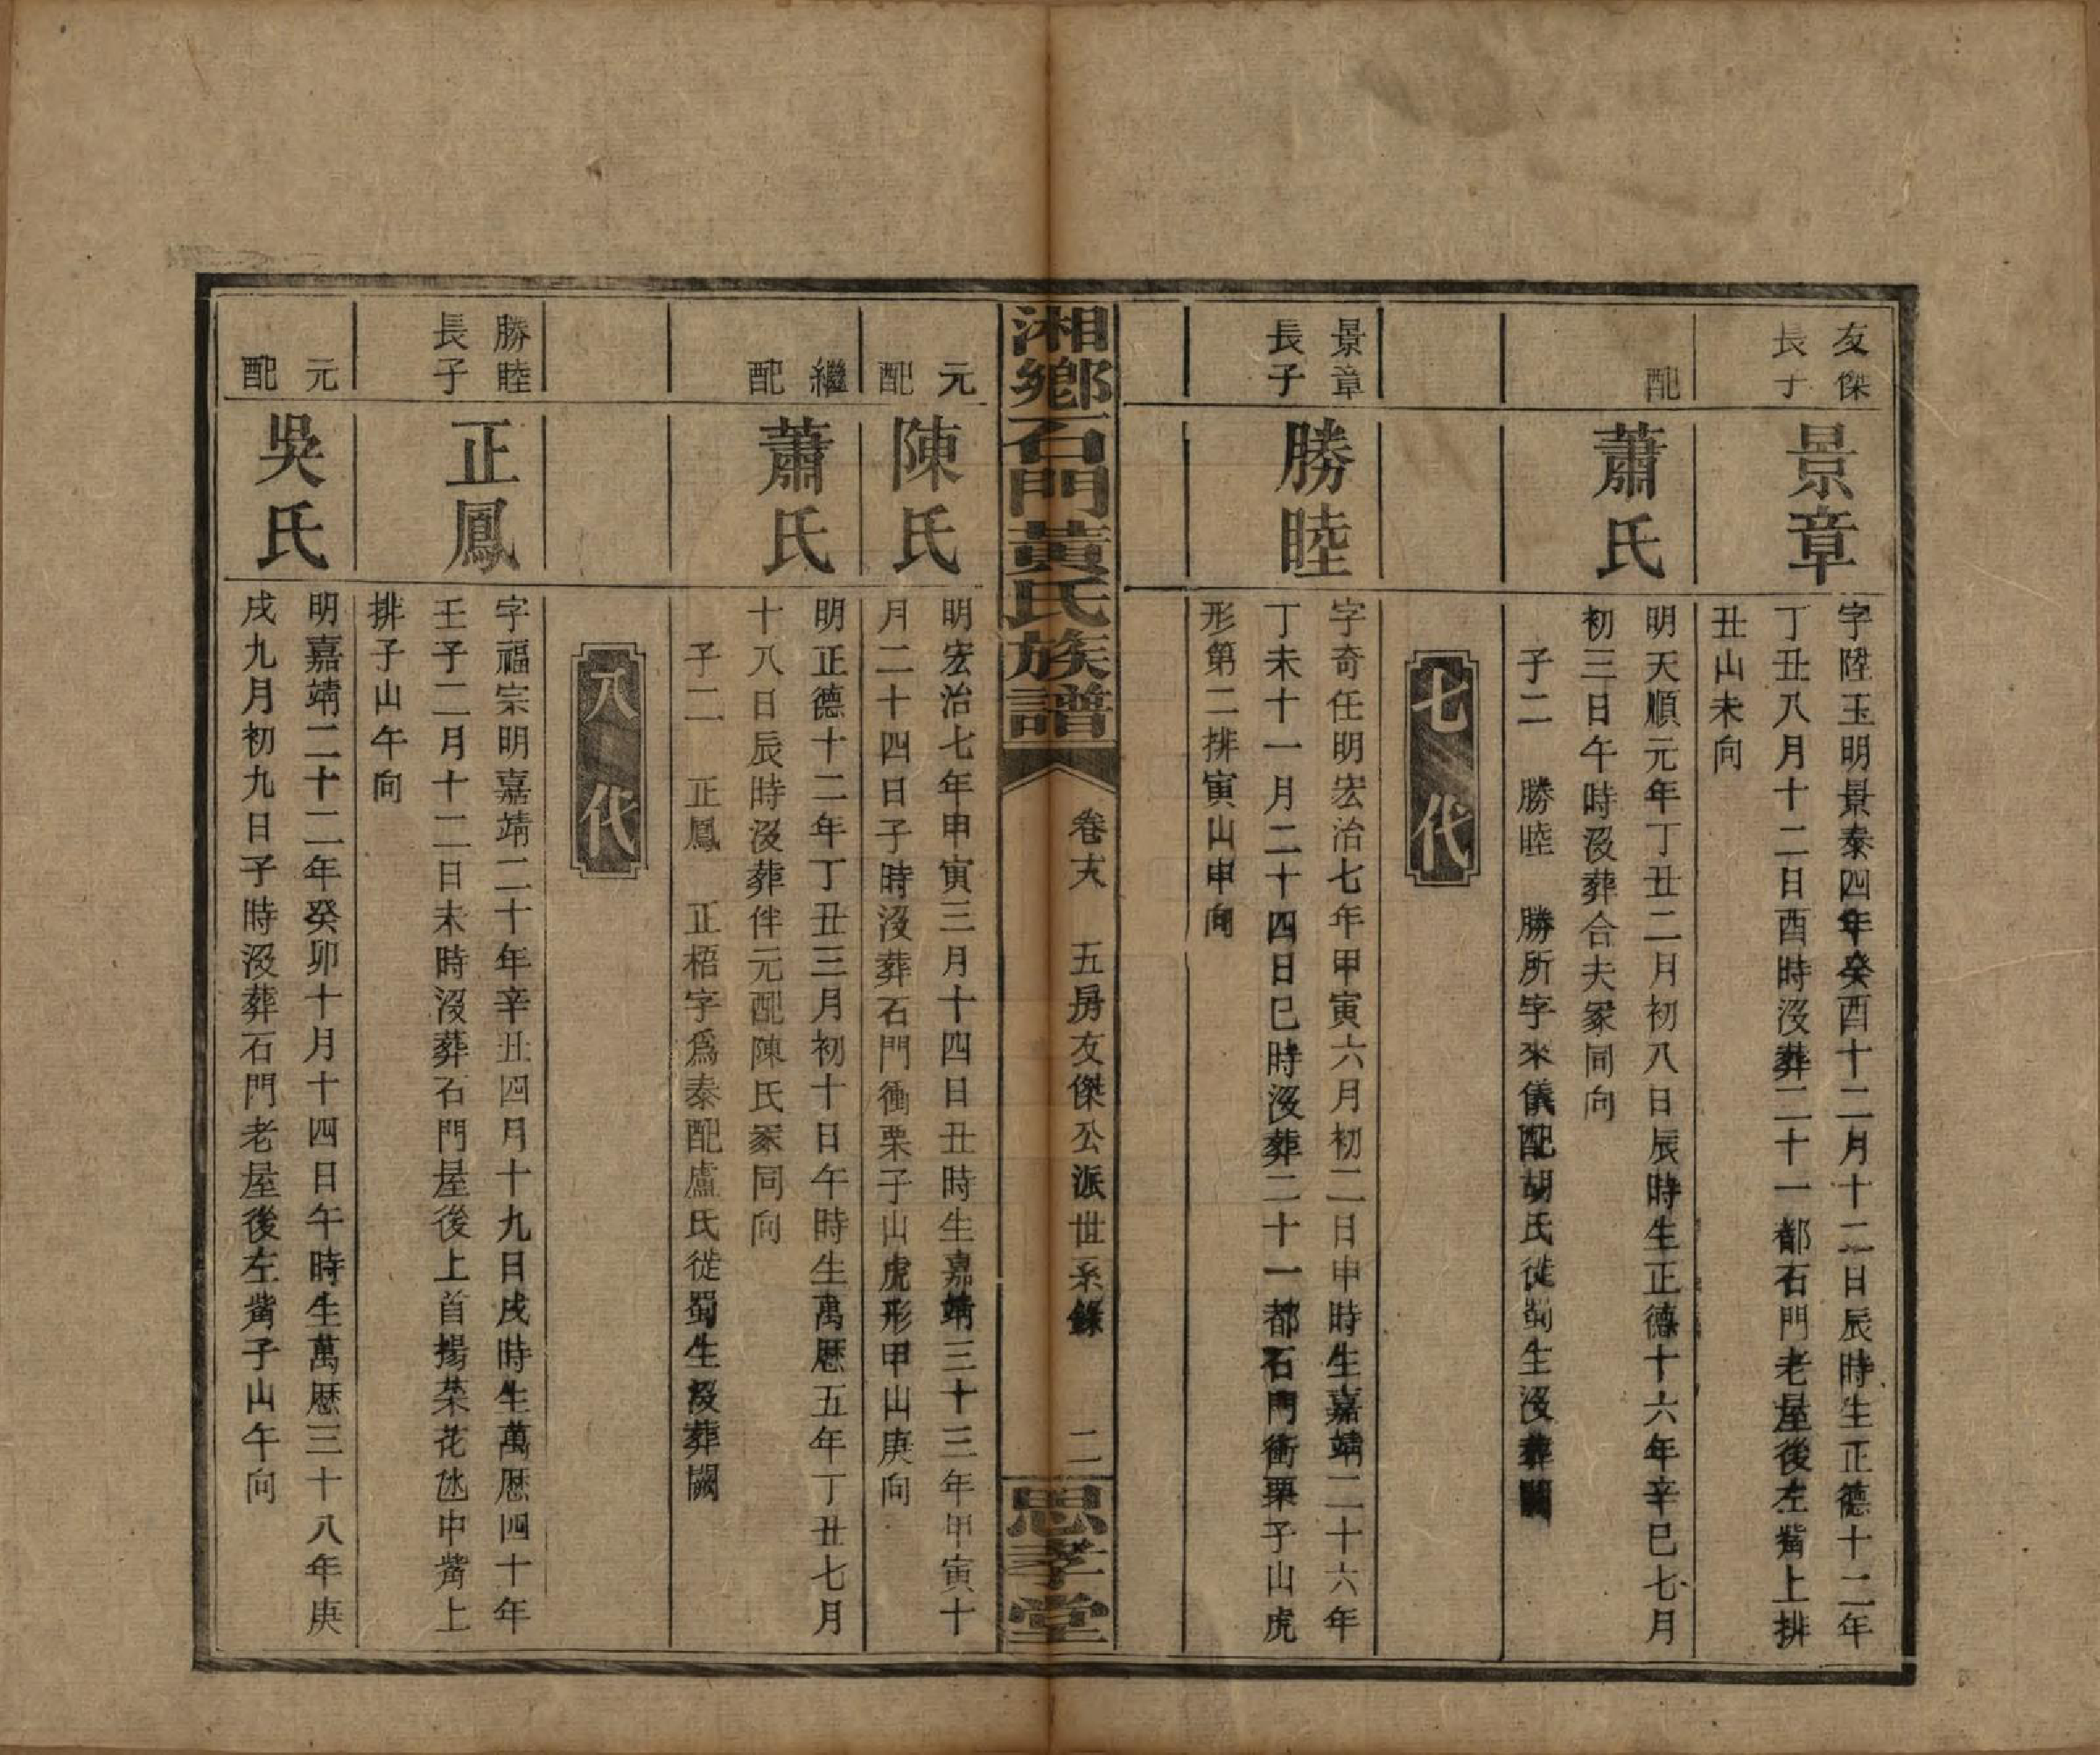 友傑
長子
景章
字陞玉明景泰四年癸酉十二月十二日辰時生正德十二年
丁丑八月十二日酉時沒葬二十一都石門老屋後左觜上排
丑山未向
配
蕭氏
明天順元年丁丑二月初八日辰時生正德十六年辛巳七月
初三日午時沒葬合夫冢同向
子二　勝睦　勝所字來儀配胡氏徙蜀生沒葬闕
七代
景章
長子
勝睦
字奇任明宏治七年甲寅六月初二日申時生嘉靖二十六年
丁未十一月二十四日巳時沒葬二十一都石門衝栗子山虎
形第二排寅山申向
湘鄉石門黃氏族譜
卷　五房友傑公派世系錄　二
思孝堂
元
配
陳氏
明宏治七年甲寅三月十四日丑時生嘉靖三十三年甲寅十
月二十四日子時沒葬石門衝栗子山虎形甲山庚向
繼
配
蕭氏
明正德十二年丁丑三月初十日午時生萬厯五年丁丑七月
十八日辰時沒葬伴元配陳氏冢同向
子二　正鳳　正梧字爲泰配盧氏徙蜀生沒葬闕
八代
勝睦
長子
正鳳
字福宗明嘉靖二十年辛丑四月十九日戌時生萬厯四十年
壬子二月十二日未時沒葬石門屋後上首揚菜花氹中觜上
排子山午向
元
配
吳氏
明嘉靖二十二年癸卯十月十四日午時生萬厯三十八年庚
戌九月初九日子時沒葬石門老屋後左觜子山午向